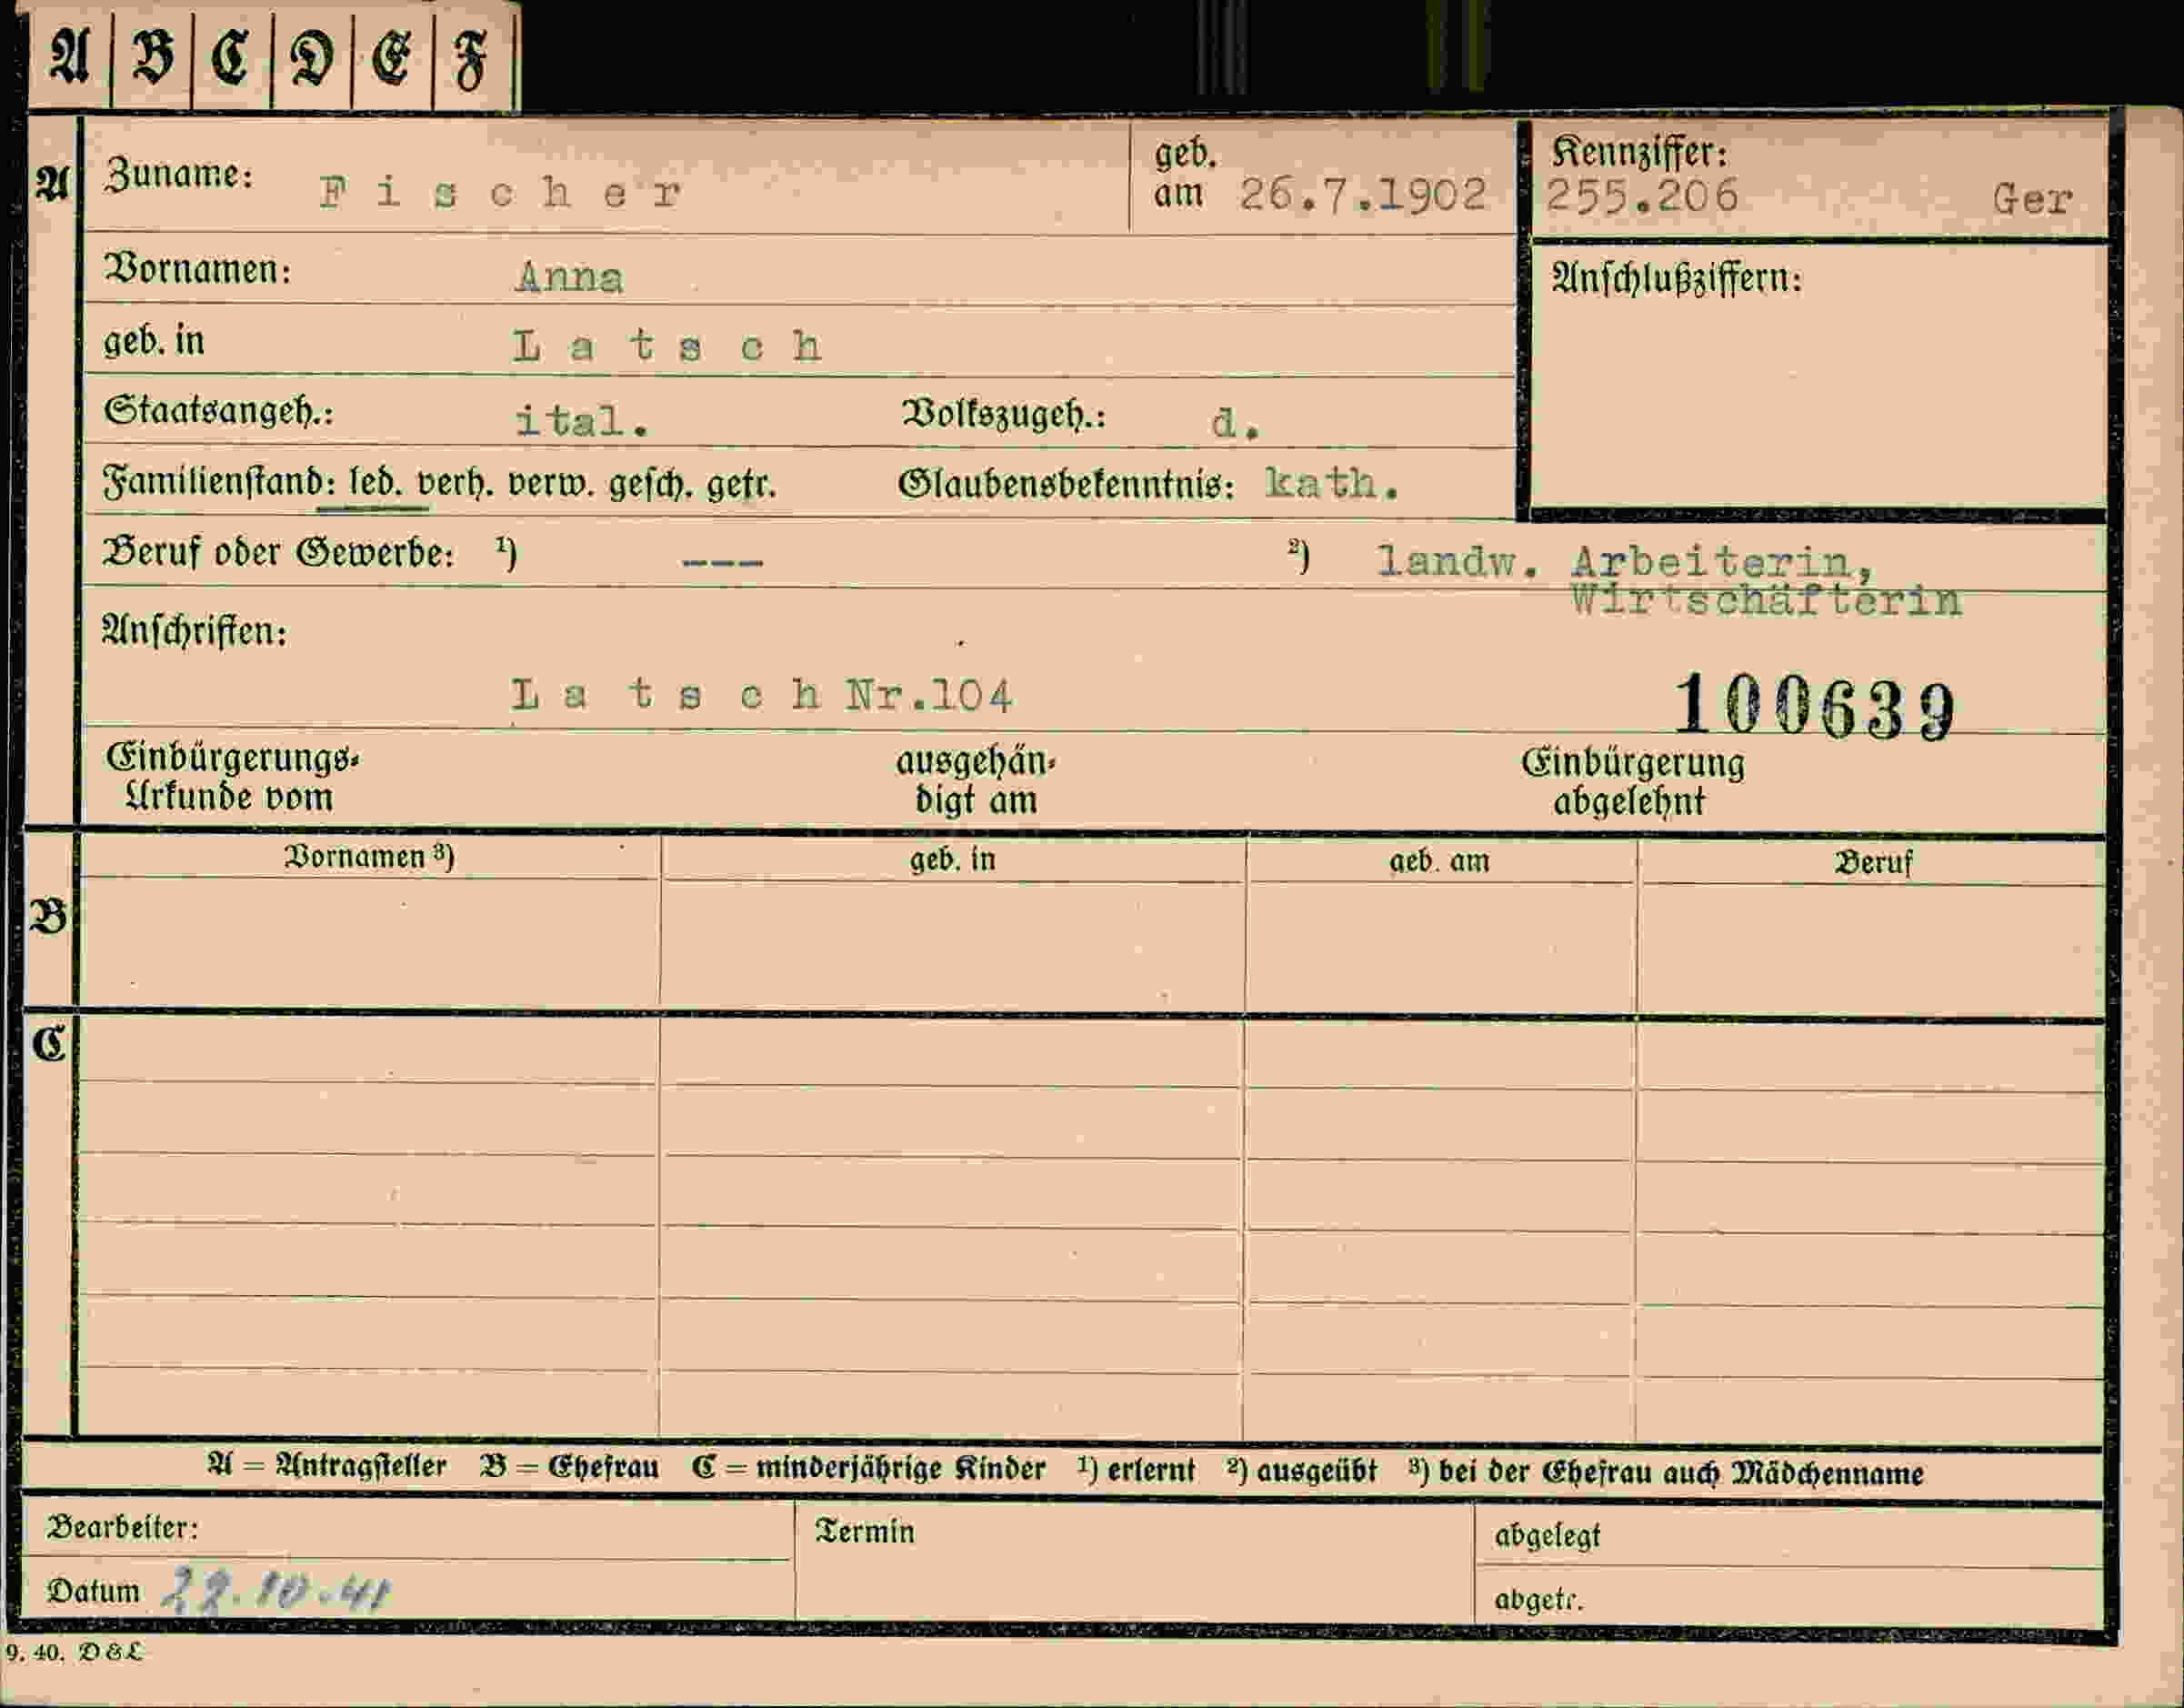 A B C D E F
A Zuname: Fischer geb. am 26.7.1902 Kennziffer: 255.206 Ger
Vornamen: Anna Anschlußziffern:
geb. in Latsch
Staatsangeh.: ital. Volkszugeh.: d.
Familienstand: led. verh. verw. gesch. getr. Glaubensbekenntnis: kath.
Beruf oder Gewerbe: ¹) --- ²) landw. Arbeiterin,
Wirtschäfterin
Anschriften:
Latsch Nr.104 100639
Einbürgerungs- ausgehän- Einbürgerung
Urkunde vom digt am abgelehnt
Vornamen ³) geb. in geb. am Beruf
B
C
A = Antragsteller B = Ehefrau C = minderjährige Kinder ¹) erlernt ²) ausgeübt ³) bei der Ehefrau auch Mädchenname
Bearbeiter: Termin abgelegt
Datum 22.10.41 abgetr.
9. 40. D & L